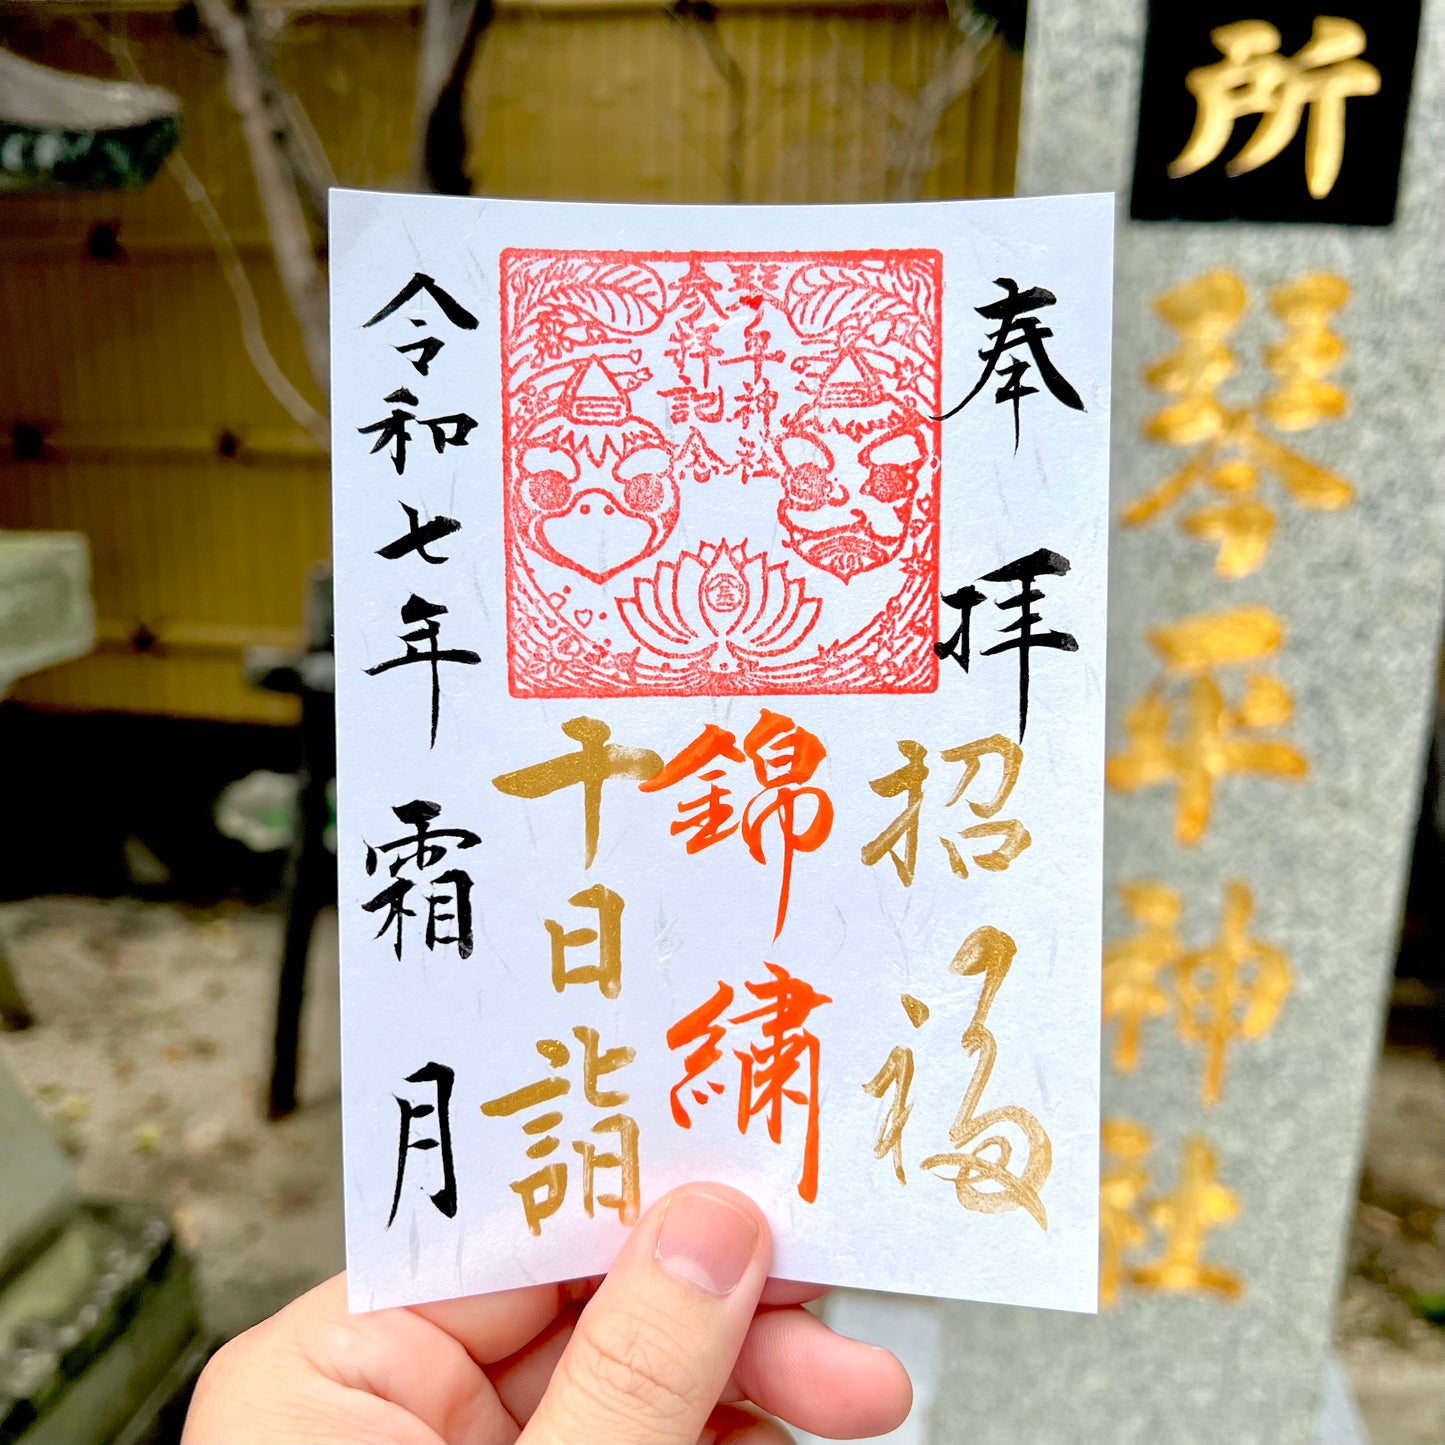 奉拝
招福
錦繍
十日詣
令和七年 霜月
琴平神社
参拝記念
所
琴平神社